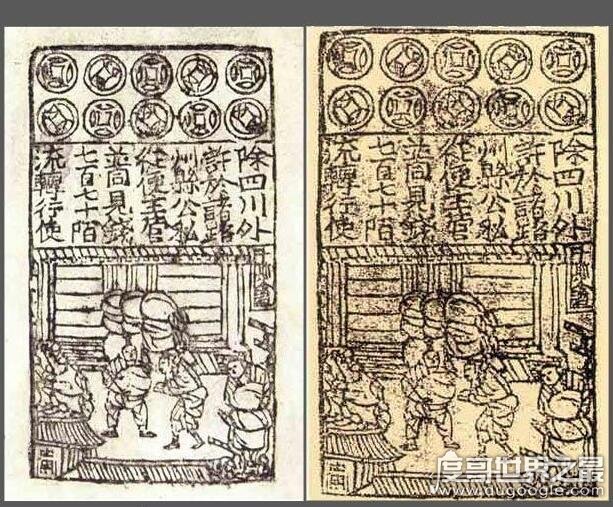 除四川外
許於諸路
州縣公私
從便主管
並同見錢
七百七十陌
流轉行使
除四川外
許於諸路
州縣公私
從便主管
並同見錢
七百七十陌
流轉行使
度哥世界之最
www.dugoogle.com